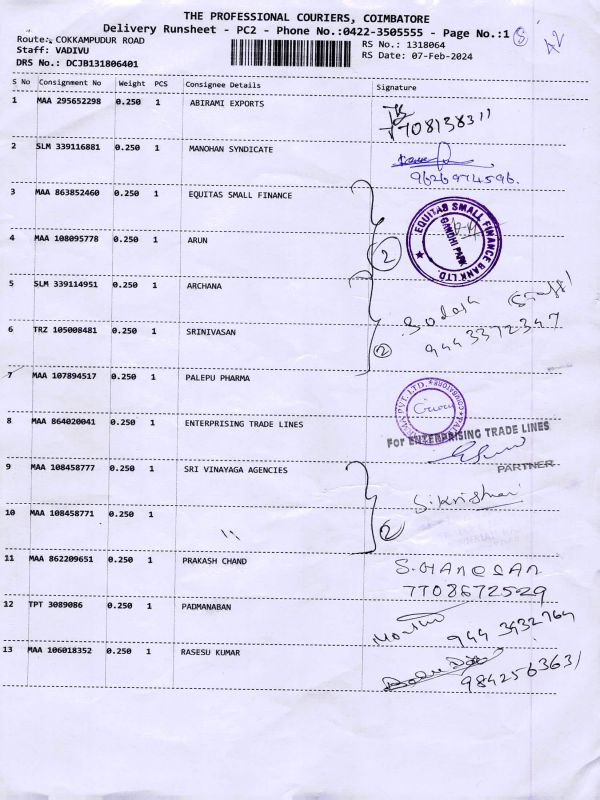 THE PROFESSIONAL COURIERS, COIMBATORE
Delivery Runsheet - PC2 - Phone No.:0422-3505555 - Page No.:1
Route: COKKAMPUDUR ROAD
Staff: VADIVU
DRS No.: DCJB131806401
RS No.: 1318064
RS Date: 07-Feb-2024
S No Consignment No Weight PCS Consignee Details Signature
1 MAA 295652298 0.250 1 ABIRAMI EXPORTS
7708138311
2 SLM 339116881 0.250 1 MANOHAN SYNDICATE
9626974596.
3 MAA 863852460 0.250 1 EQUITAS SMALL FINANCE
EQUITAS SMALL FINANCE BANK LTD.
GANDHI PARK
4 MAA 108095778 0.250 1 ARUN
2
5 SLM 339114951 0.250 1 ARCHANA
6 TRZ 105008481 0.250 1 SRINIVASAN
9443372347
2
7 MAA 107894517 0.250 1 PALEPU PHARMA
8 MAA 864020041 0.250 1 ENTERPRISING TRADE LINES
For ENTERPRISING TRADE LINES
PARTNER.
9 MAA 108458777 0.250 1 SRI VINAYAGA AGENCIES
S.Krishnan
10 MAA 108458771 0.250 1 "
2
11 MAA 862209651 0.250 1 PRAKASH CHAND
S.GANESAN
7708672529
12 TPT 3089086 0.250 1 PADMANABAN
944 3432764
13 MAA 106018352 0.250 1 RASESU KUMAR
9842563631